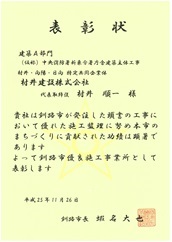 表彰状
建築A部門
(仮称)中央消防署新東分署庁舎建築主体工事
村井・向陽・日向 特定共同企業体
村井建設株式会社
代表取締役 村井 順一 様
貴社は釧路市が発注した頭書の工事に
おいて優れた施工監理に努め本市の
まちづくりに貢献された功績は顕著で
あります
よって釧路市優良施工事業所として
表彰します
平成25年11月26日
釧路市長 蝦名大也